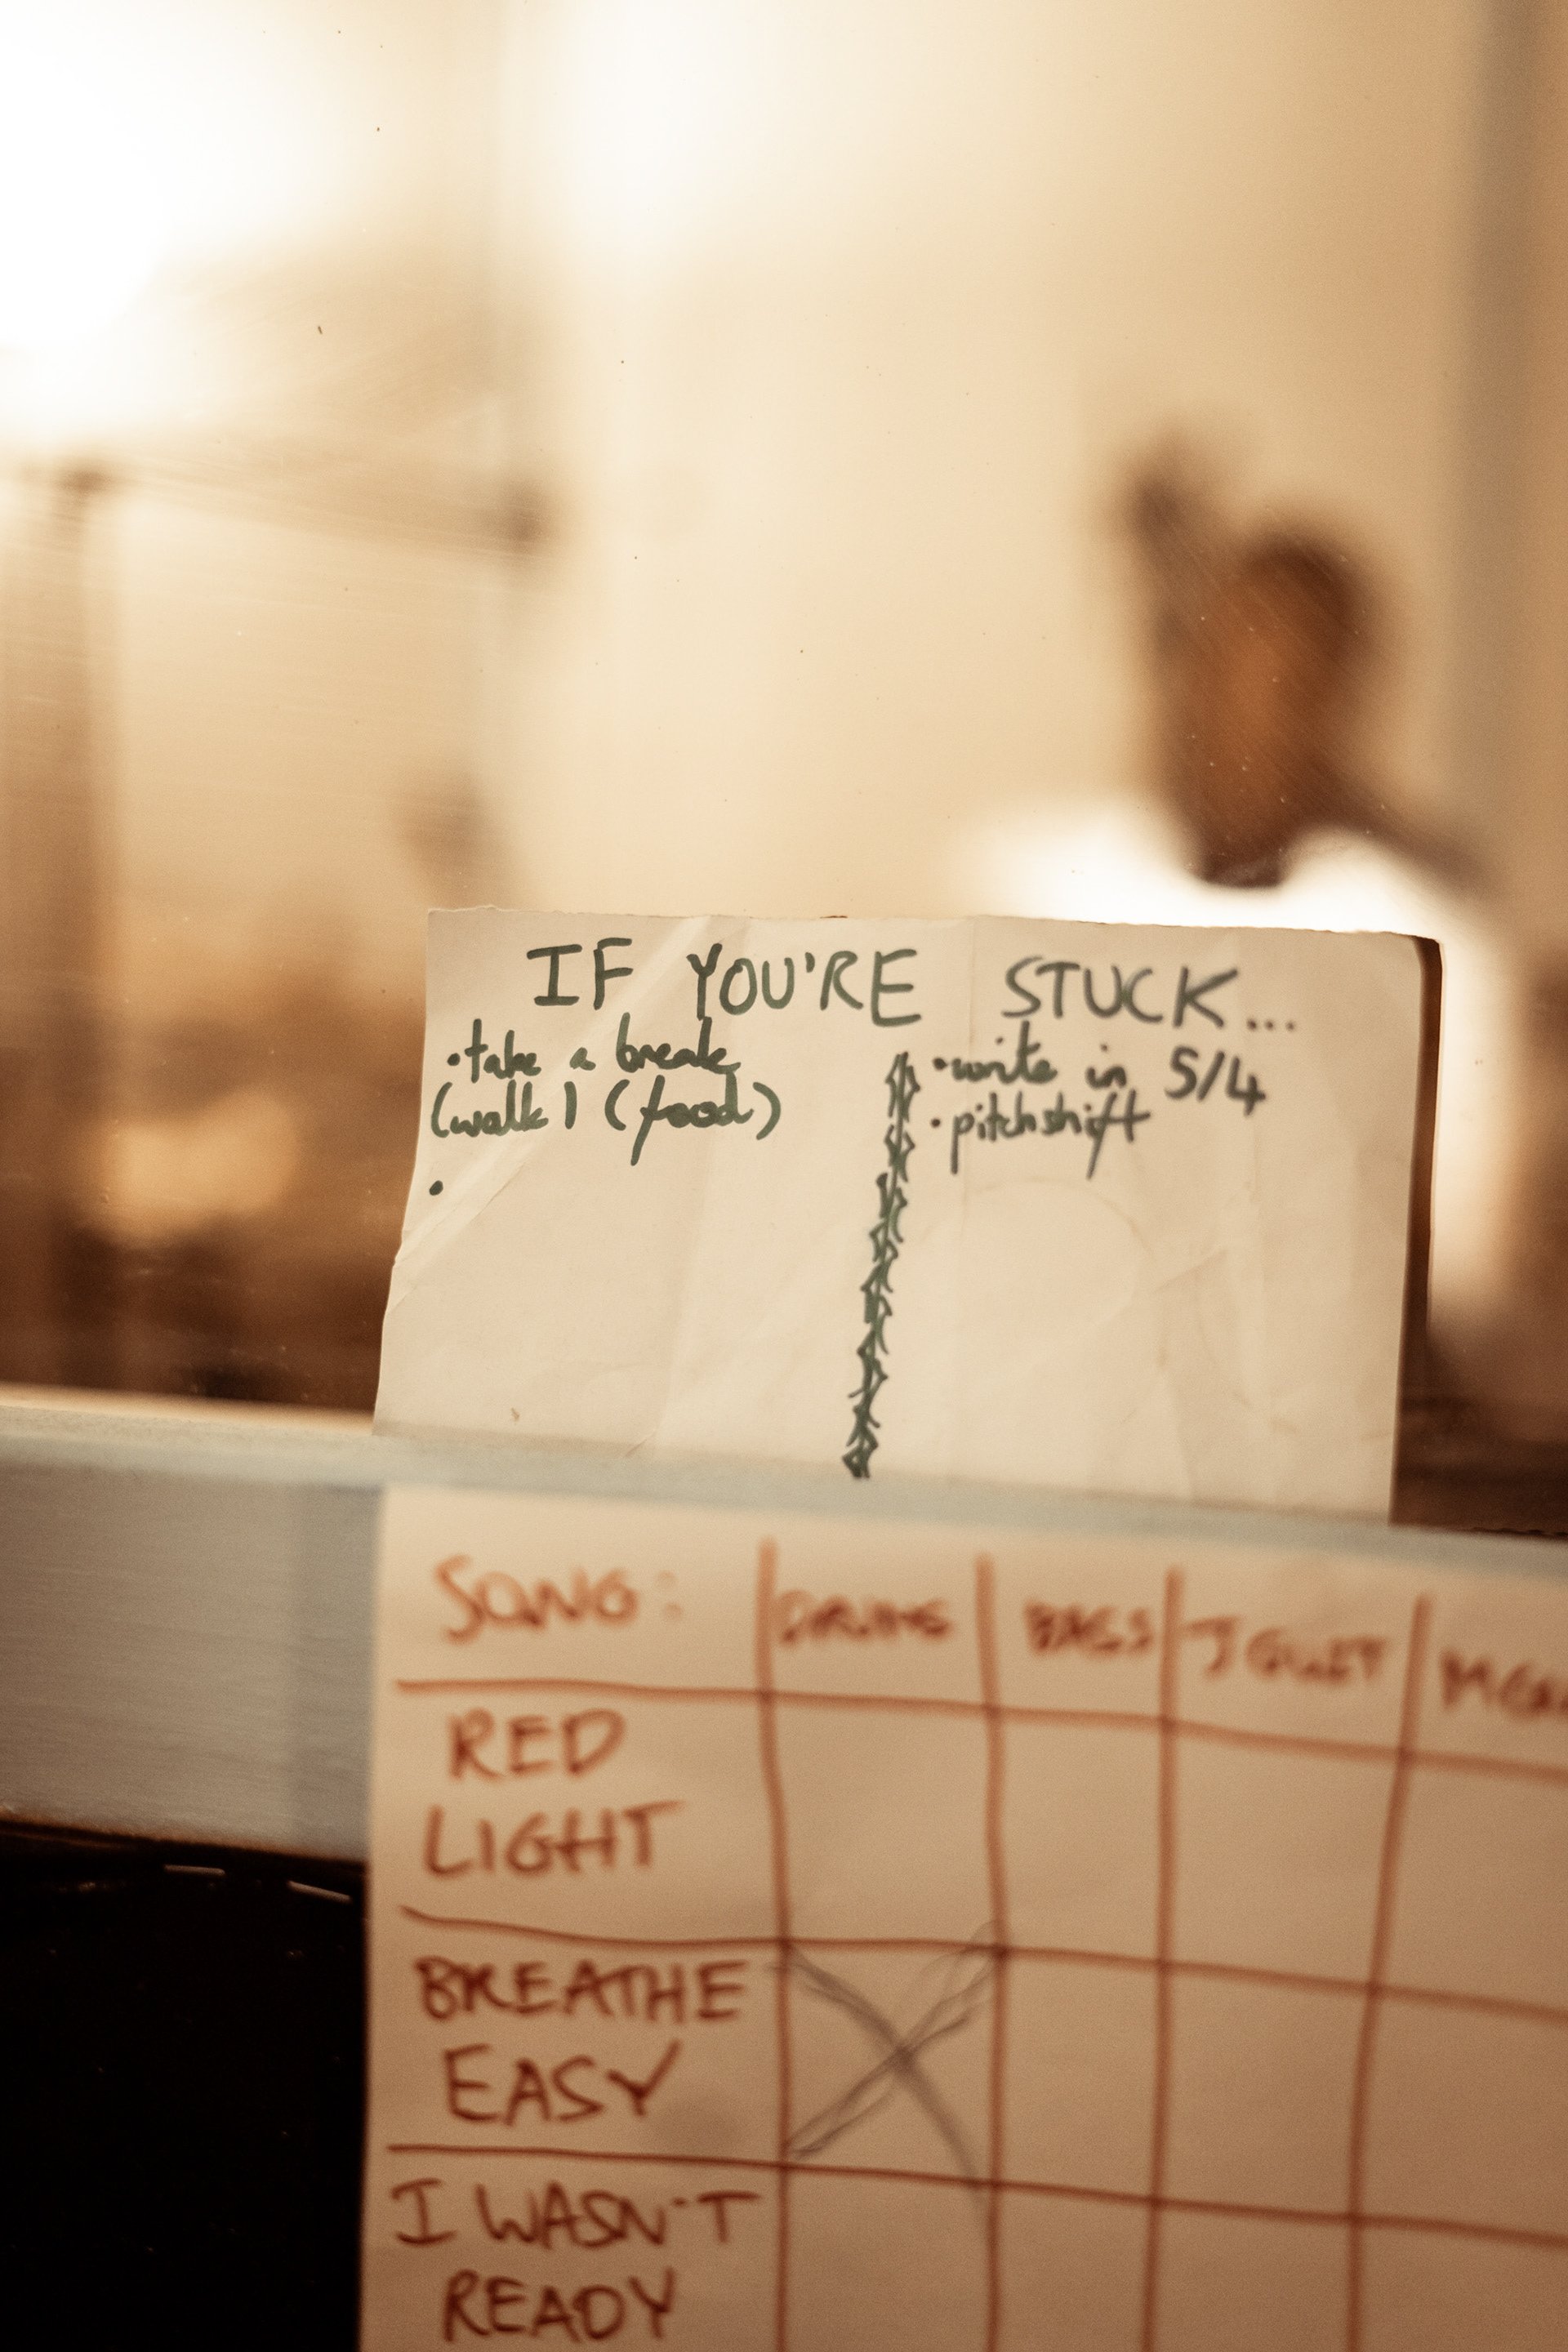 IF YOU'RE STUCK...
•take a break
(walk) (food)
•
•write in 5/4
•pitchshift
SONG: DRUMS BASS J GUIT
RED
LIGHT
BREATHE
EASY
I WASN'T
READY